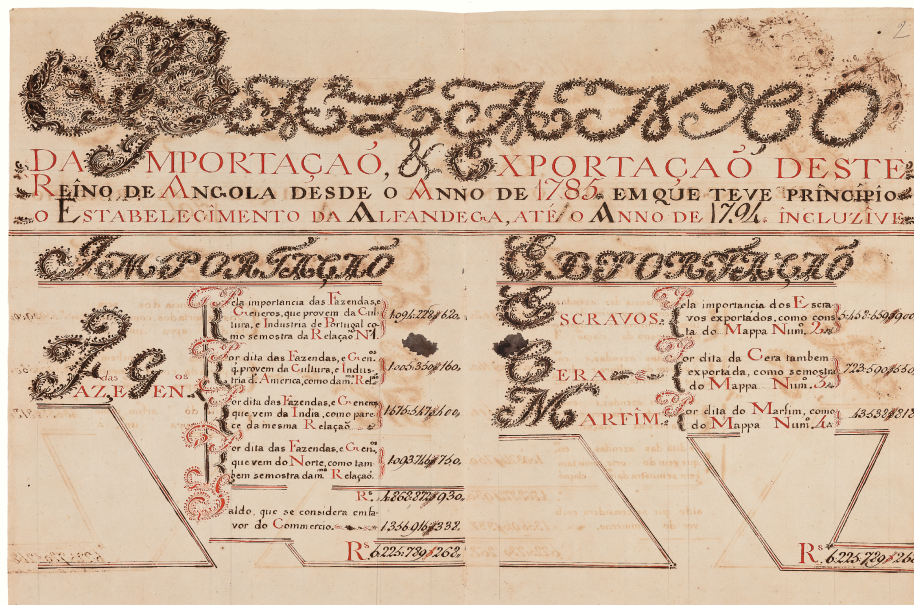 2
BALANÇO
DA IMPORTAÇAÕ, & EXPORTAÇAÕ DESTE
REINO DE ANGOLA DESDE O ANNO DE 1785. EM QUE TEVE PRINCIPIO
O ESTABELECIMENTO DA ALFANDEGA, ATE O ANNO DE 1794. INCLUZIVE
IMPORTAÇÃO
FAZ.das E GEN.os
Pela importancia das Fazendas, e
Generos, que provem da Cul-
tura, e Industria de Portugal co-
mo semostra da Relaçaõ N.º 1.
Por dita das Fazendas, e Gen.os
q provem da Cultura, e Indus-
tria d'America, como da m.ma Rel.
Por dita das Fazendas, e Generos
que vem da India, como pare-
ce da mesma Relaçaõ
Por dita das Fazendas, e Gen.os
que vem do Norte, como tam-
bem semostra da m.ma Relaçaõ.
R.s 4.868:872$930.
Saldo, que se considera emfa-
vor do Commercio. 1.356:916$332.
R.s 6.225:789$262.
EXPORTAÇÃO
ESCRAVOS.
Pela importancia dos Escra-
vos exportados, como cons-
ta do Mappa Num. 2.
CERA
Por dita da Cera tambem
exportada, como semostra
do Mappa Num. 3.
MARFIM.
Por dita do Marfim, como
do Mappa Num. 4.
R.s